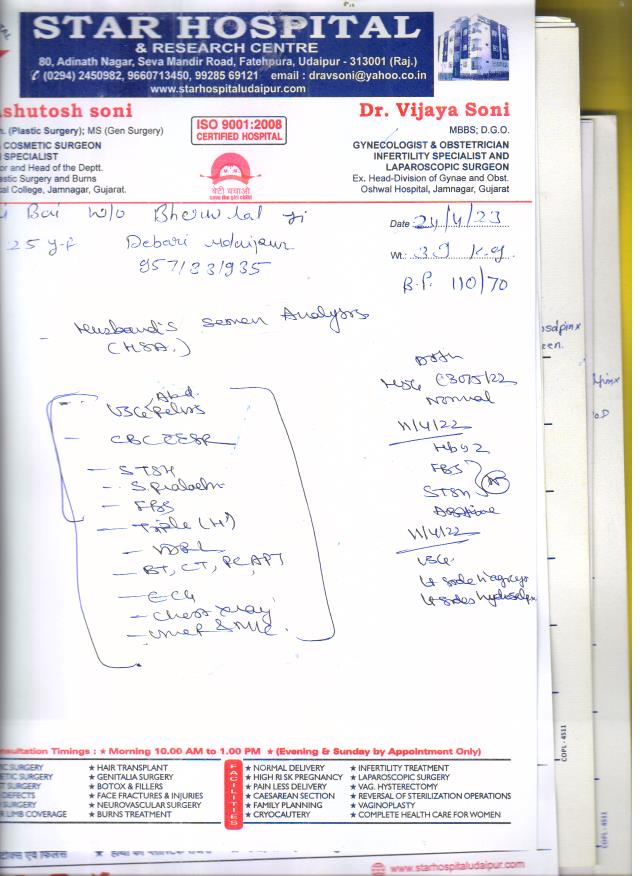 STAR HOSPITAL
& RESEARCH CENTRE
80, Adinath Nagar, Seva Mandir Road, Fatehpura, Udaipur - 313001 (Raj.)
(0294) 2450982, 9660713450, 99285 69121 email : dravsoni@yahoo.co.in
www.starhospitaludaipur.com
shutosh soni
(Plastic Surgery); MS (Gen Surgery)
COSMETIC SURGEON
SPECIALIST
or and Head of the Deptt.
astic Surgery and Burns
al College, Jamnagar, Gujarat.
ISO 9001:2008
CERTIFIED HOSPITAL
बेटी बचाओ
save the girl child
Dr. Vijaya Soni
MBBS; D.G.O.
GYNECOLOGIST & OBSTETRICIAN
INFERTILITY SPECIALIST AND
LAPAROSCOPIC SURGEON
Ex. Head-Division of Gynae and Obst.
Oshwal Hospital, Jamnagar, Gujarat
Bai W/o Bherulal ji
25 y-f Debari Udaipur
Date 24/4/23
Wt.: 39 K.g
B.P. 110/70
Husband's Semen Analysis
(HSA.)
Abd
USG Pelvis
CBC ESR
STSH
S prolactin
FBS
Triple (H)
VDRL
BT, CT, PC, APT
ECG
Chest xray
Urine R & M/C.
HSG
Normal
11/4/22
FBS
STSH
11/4/22
USG
Consultation Timings : ★ Morning 10.00 AM to 1.00 PM ★ (Evening & Sunday by Appointment Only)
SURGERY ★ HAIR TRANSPLANT
SURGERY ★ GENITALIA SURGERY
SURGERY ★ BOTOX & FILLERS
DEFECTS ★ FACE FRACTURES & INJURIES
SURGERY ★ NEUROVASCULAR SURGERY
LIMB COVERAGE ★ BURNS TREATMENT
FACILITIES
★ NORMAL DELIVERY ★ INFERTILITY TREATMENT
★ HIGH RISK PREGNANCY ★ LAPAROSCOPIC SURGERY
★ PAIN LESS DELIVERY ★ VAG. HYSTERECTOMY
★ CAESAREAN SECTION ★ REVERSAL OF STERILIZATION OPERATIONS
★ FAMILY PLANNING ★ VAGINOPLASTY
★ CRYOCAUTERY ★ COMPLETE HEALTH CARE FOR WOMEN
www.starhospitaludaipur.com
COPL - 4511
COPL - 4511